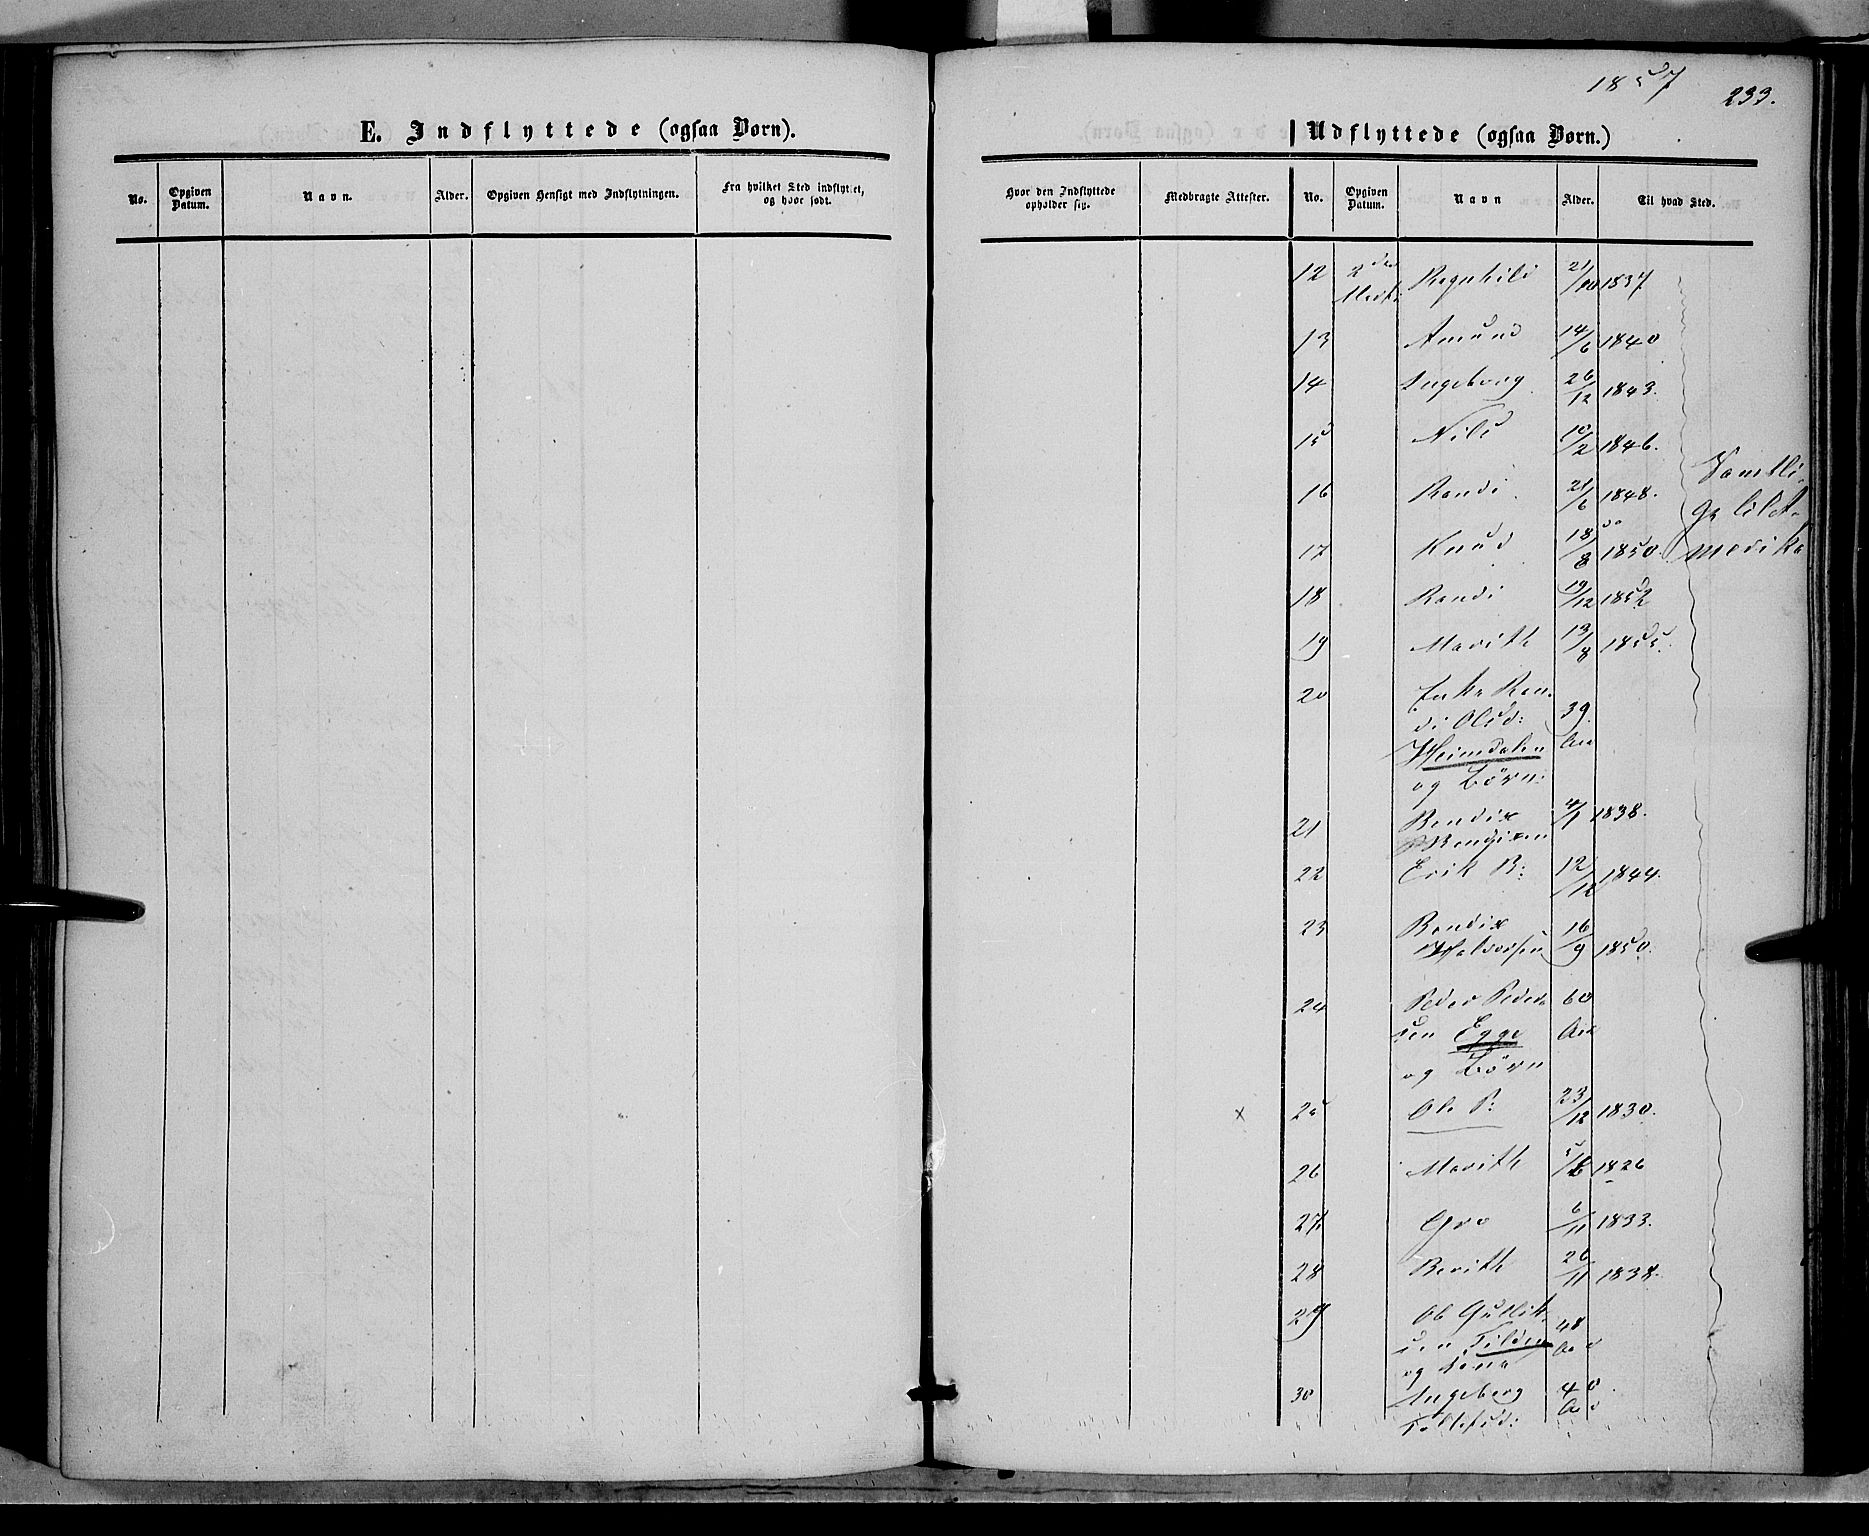 1857
233.
E. Indflyttede (ogsaa Børn).
Udflyttede (ogsaa Børn.)
No. Opgiven Datum. Navn. Alder. Opgiven Hensigt med Indflytningen. Fra hvilket Sted indflyttet, og hvor født.
Hvor den Indflyttede opholder sig. Medbragte Attester. No. Opgiven Datum. Navn Alder. Til hvad Sted.
12 2den Ragnhild 21/10 1837.
13 Amund 14/6 1840
14 Ingeborg 26/12 1843.
15 Nils 10/2 1846.
16 Randi 21/6 1848.
17 Knud 18/8 1850
18 Randi 19/12 1852
19 Marith 13/8 1855.
Samtli-
ge til A-
merika
20 Enke Ran-
di Olsd: 39
Heimdalen Aar
og Børn:
21 Bendix 4/1 1838.
Bendixen
22 Erik B: 12/12 1844.
23 Bendix 16/9 1850.
Halvorsen
24 Peder Peder- 60
sen Egge Aar
og Børn
x 25 Ole P: 23/12 1830.
26 Marith 5/6 1826
27 Gro 6/11 1833.
28 Berith 26/11 1838.
29 Ole Gullik-
sen 48 Aar
og Kone
30 Ingeborg 40
Tollefsd: Aar